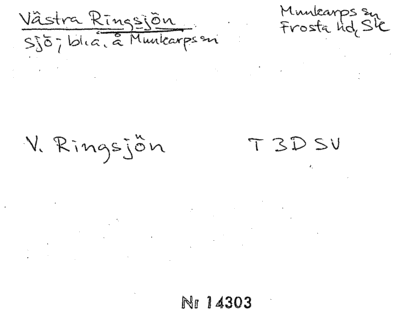 Västra Ringsjön
sjö; bl.a. å Munkarps sn
Munkarps sn
Frosta hd, Sk
V. Ringsjön
T 3D SV
Nr 14303